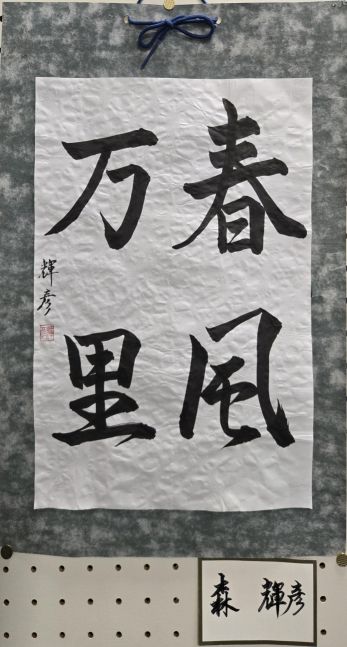 春風
万里
輝彦
森 輝彦